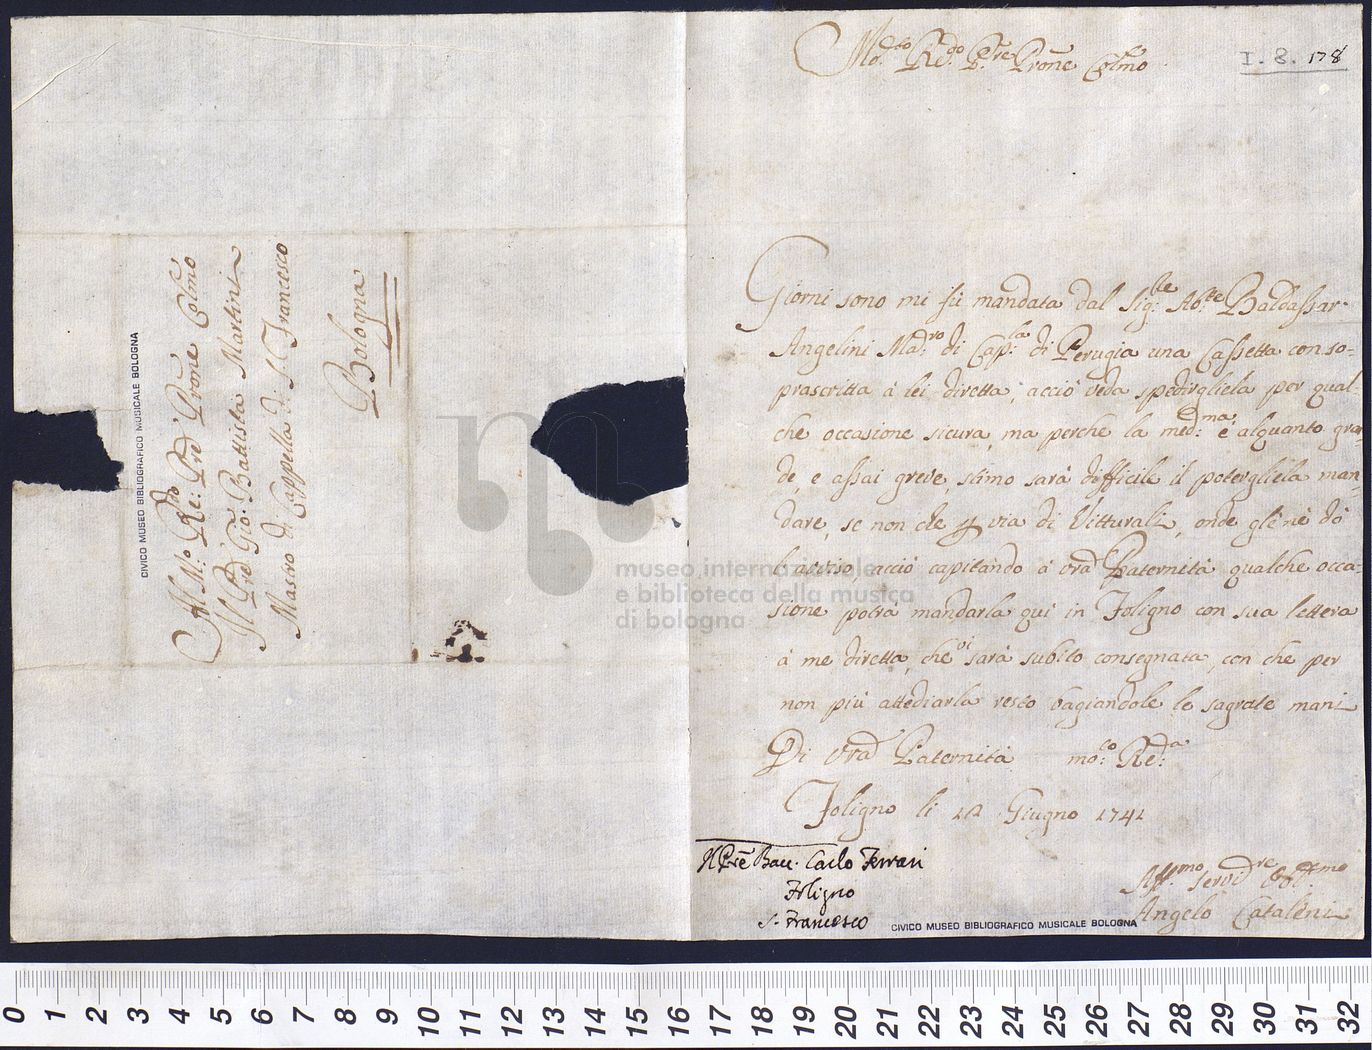 Mo:to Rdo: Pre: Prōne Colmo
I. 8. 178
Giorni sono mi fù mandata dal Sig:re Ab:te Baldassar
Angelini Ma:ro di Cap:la di Perugia una Cassetta con so=
prascritta à lei diretta, acciò veda spedirgliela per qual
che occasione sicura, ma perche la med:ma è alquanto gran
de, e assai greve, stimo sarà difficile il potergliela man=
dare, se non che per via di Vitturali, onde gle nè dò
l'aviso, acciò capitando à vrā Paternità qualche occa=
sione potrà mandarla qui in Foligno con sua lettera
à me diretta, che sarà subito consegnata, con che per
non più attediarla resto bagiandole le sagrate mani
Di vrā Paternità mo:to Red:a
Foligno li 12 Giugno 1741
Aff:mo Servid:re
Angelo Cataleni
Il Pre Bacc. Carlo Ferrari
Foligno
S. Francesco
CIVICO MUSEO BIBLIOGRAFICO MUSICALE BOLOGNA
Al M:o Re: Pre Prōne Colmo
Il Pre Gio: Battista Martini
Mastro di Cappella di S. Francesco
Bologna
CIVICO MUSEO BIBLIOGRAFICO MUSICALE BOLOGNA
museo internazionale
e biblioteca della musica
di bologna
0 1 2 3 4 5 6 7 8 9 10 11 12 13 14 15 16 17 18 19 20 21 22 23 24 25 26 27 28 29 30 31 32